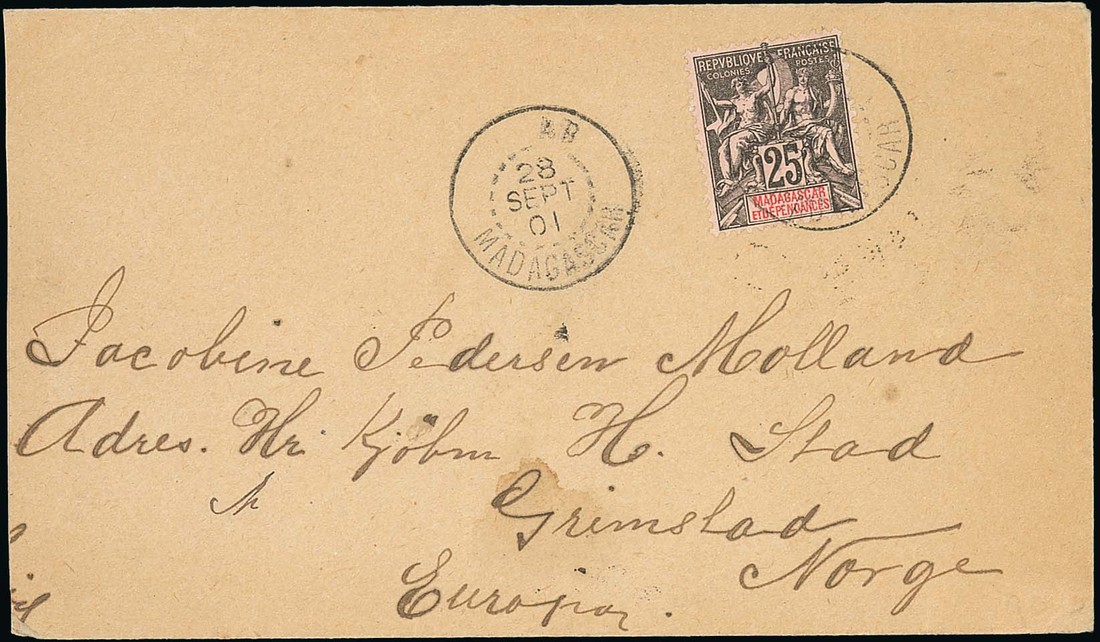 REPVBLIQVE FRANÇAISE
COLONIES POSTES
25
MADAGASCAR
ET DÉPENDANCES
28
SEPT
01
MADAGASCAR
Jacobine Pedersen Molland
Adres. Hr. Kjöbm H. Stad
Grimstad
Norge
Europa.